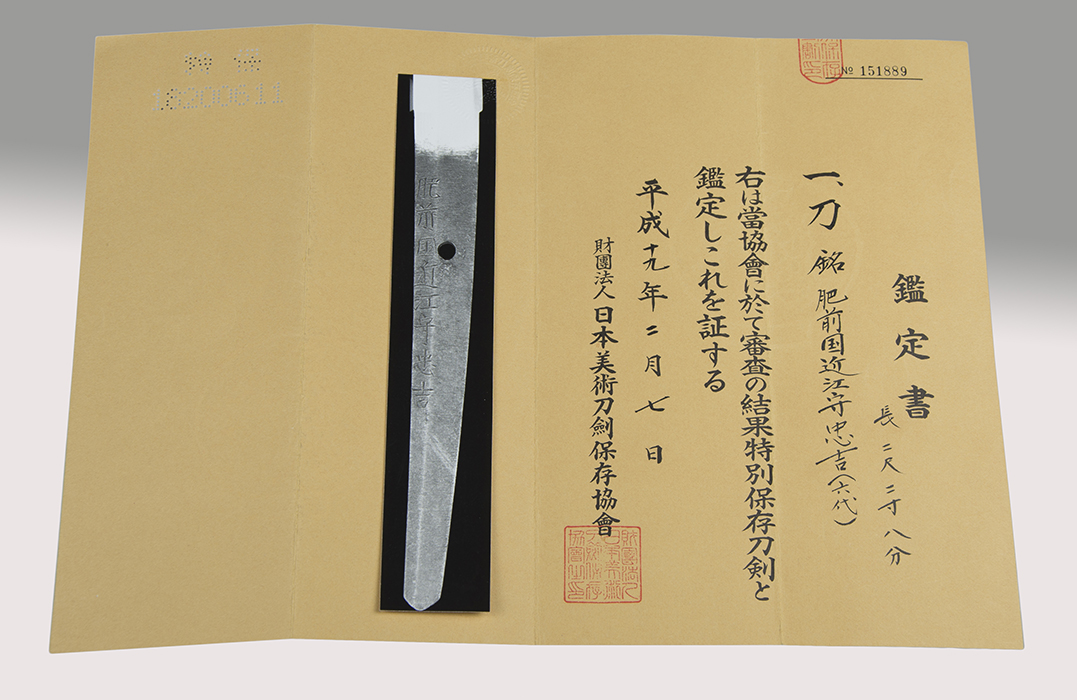 № 151889
鑑定書
長二尺二寸八分
一、刀 銘 肥前国近江守忠吉(六代)
右は當協會に於て審査の結果特別保存刀剣と
鑑定しこれを証する
平成十九年二月七日
財團法人日本美術刀剣保存協會
肥前国近江守忠吉